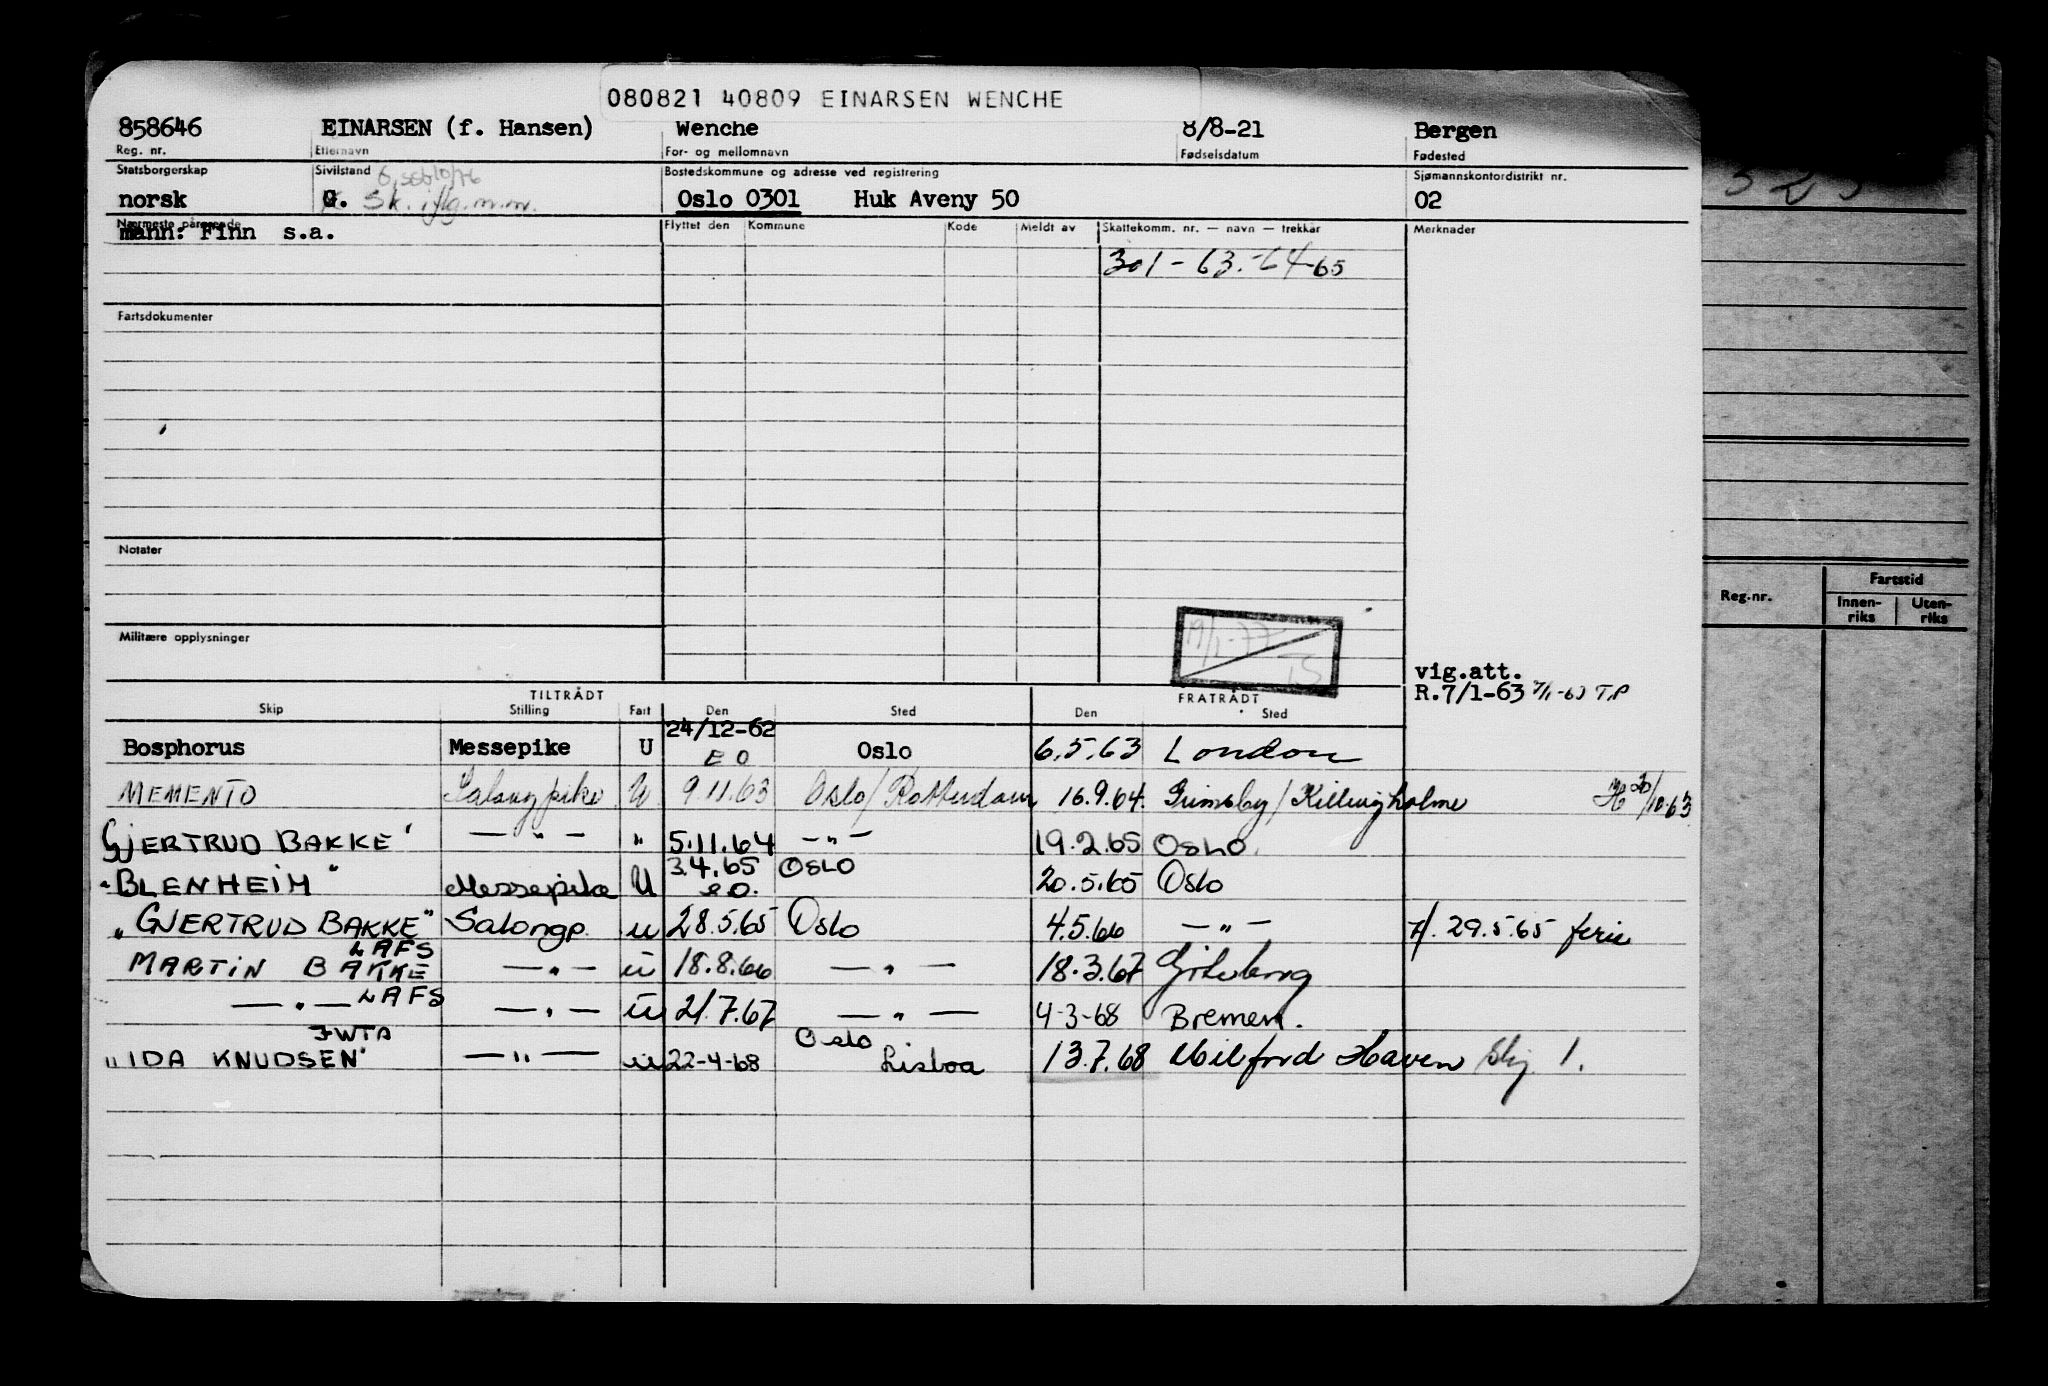 080821 40809 EINARSEN WENCHE
858646 EINARSEN (f. Hansen) Wenche 8/8-21 Bergen
Reg. nr. Etternavn For- og mellomnavn Fødselsdatum Fødested
Statsborgerskap Sivilstand Bostedskommune og adresse ved registrering Sjømannskontordistrikt nr.
norsk G. Sk. iflg. m.m. Oslo 0301 Huk Aveny 50 02
Nærmeste pårørende Flyttet den Kommune Kode Meldt av Skattekomm. nr. — navn — trekkår Merknader
mann: Finn s.a.
301 - 63.-64-65
Fartsdokumenter
Notater
Militære opplysninger
19/1-77
TS
vig.att.
R.7/1-63 7/1-63 T.P
TILTRÅDT FRATRÅDT
Skip Stilling Fart Den Sted Den Sted
24/12-62
Bosphorus Messepike U EO Oslo 6.5.63 London
MEMENTO Salongpike U 9.11.63 Oslo/Rotterdam 16.9.64. Grimsby/Killingholme 20/10-63
GJERTRUD BAKKE" — " — " 5.11.64 — " — 19.2.65 OSLO.
"BLENHEIM" Messepike U 3.4.65 e.o. OSLO 20.5.65 Oslo
"GJERTRUD BAKKE" Salongp. u 28.5.65 Oslo 4.5.66 — " — 29.5.65 ferie
LAFS
MARTIN BAKKE — " — u 18.8.66 — " — 18.3.67 Göteborg
— " — LAFS — " — u 21.7.67 — " — 4-3-68 Bremen.
JWTA
"IDA KNUDSEN" — " — u 22-4-68 Oslo Lisboa 13.7.68 Milford Haven Skj. 1.
Reg.-nr. Fartstid
Innen-
riks Uten-
riks